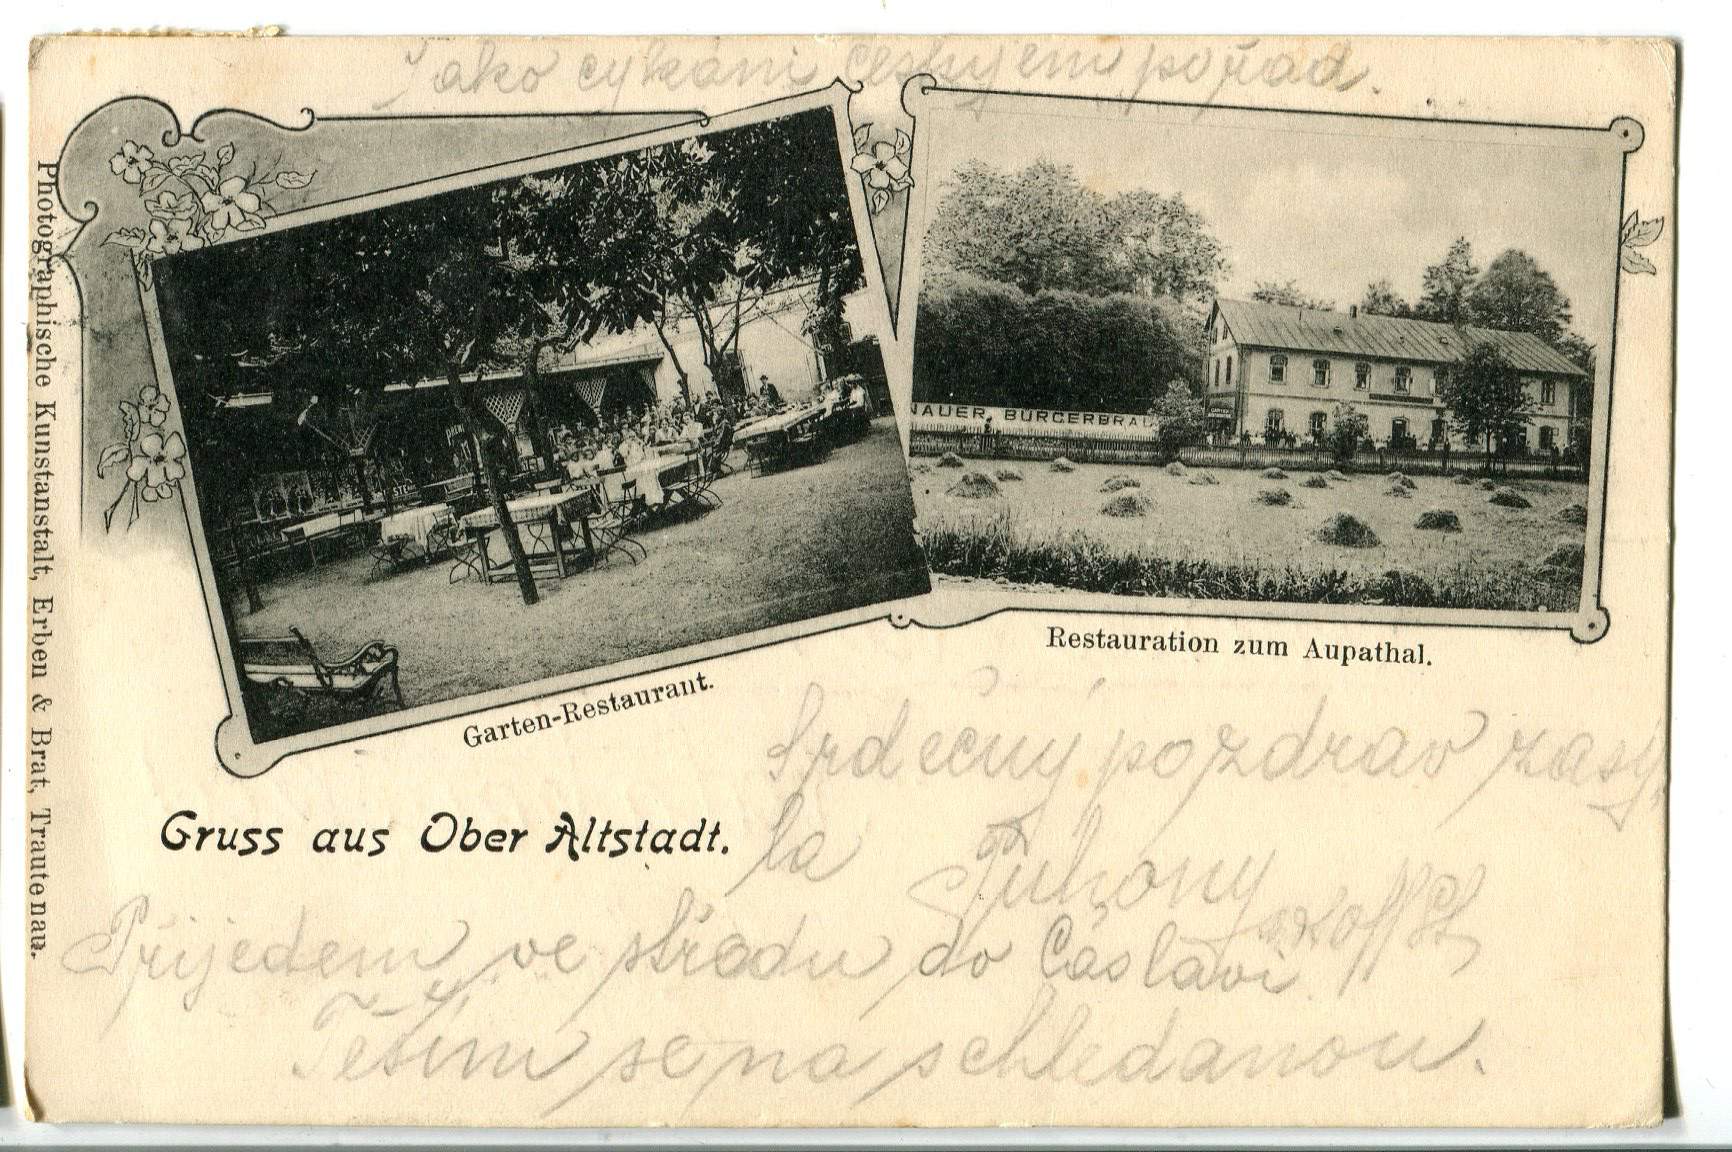 Jako cykáni cestujem pořád.
NAUER BÜRGERBRÄU
Restauration zum Aupathal.
Garten-Restaurant.
Photographische Kunstanstalt, Erben & Brat, Trautenau.
Gruss aus Ober Altstadt.
Srdečný pozdrav zasý-
la
Přijedem ve středu do Čáslavi.
Těším se na schledanou.